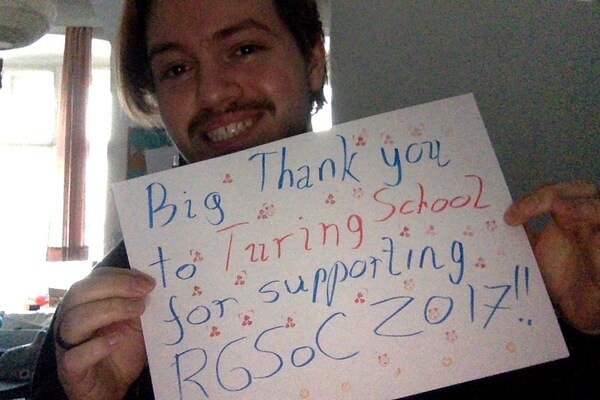 Big Thank you
to Turing School
for supporting
RGSoC 2017!!